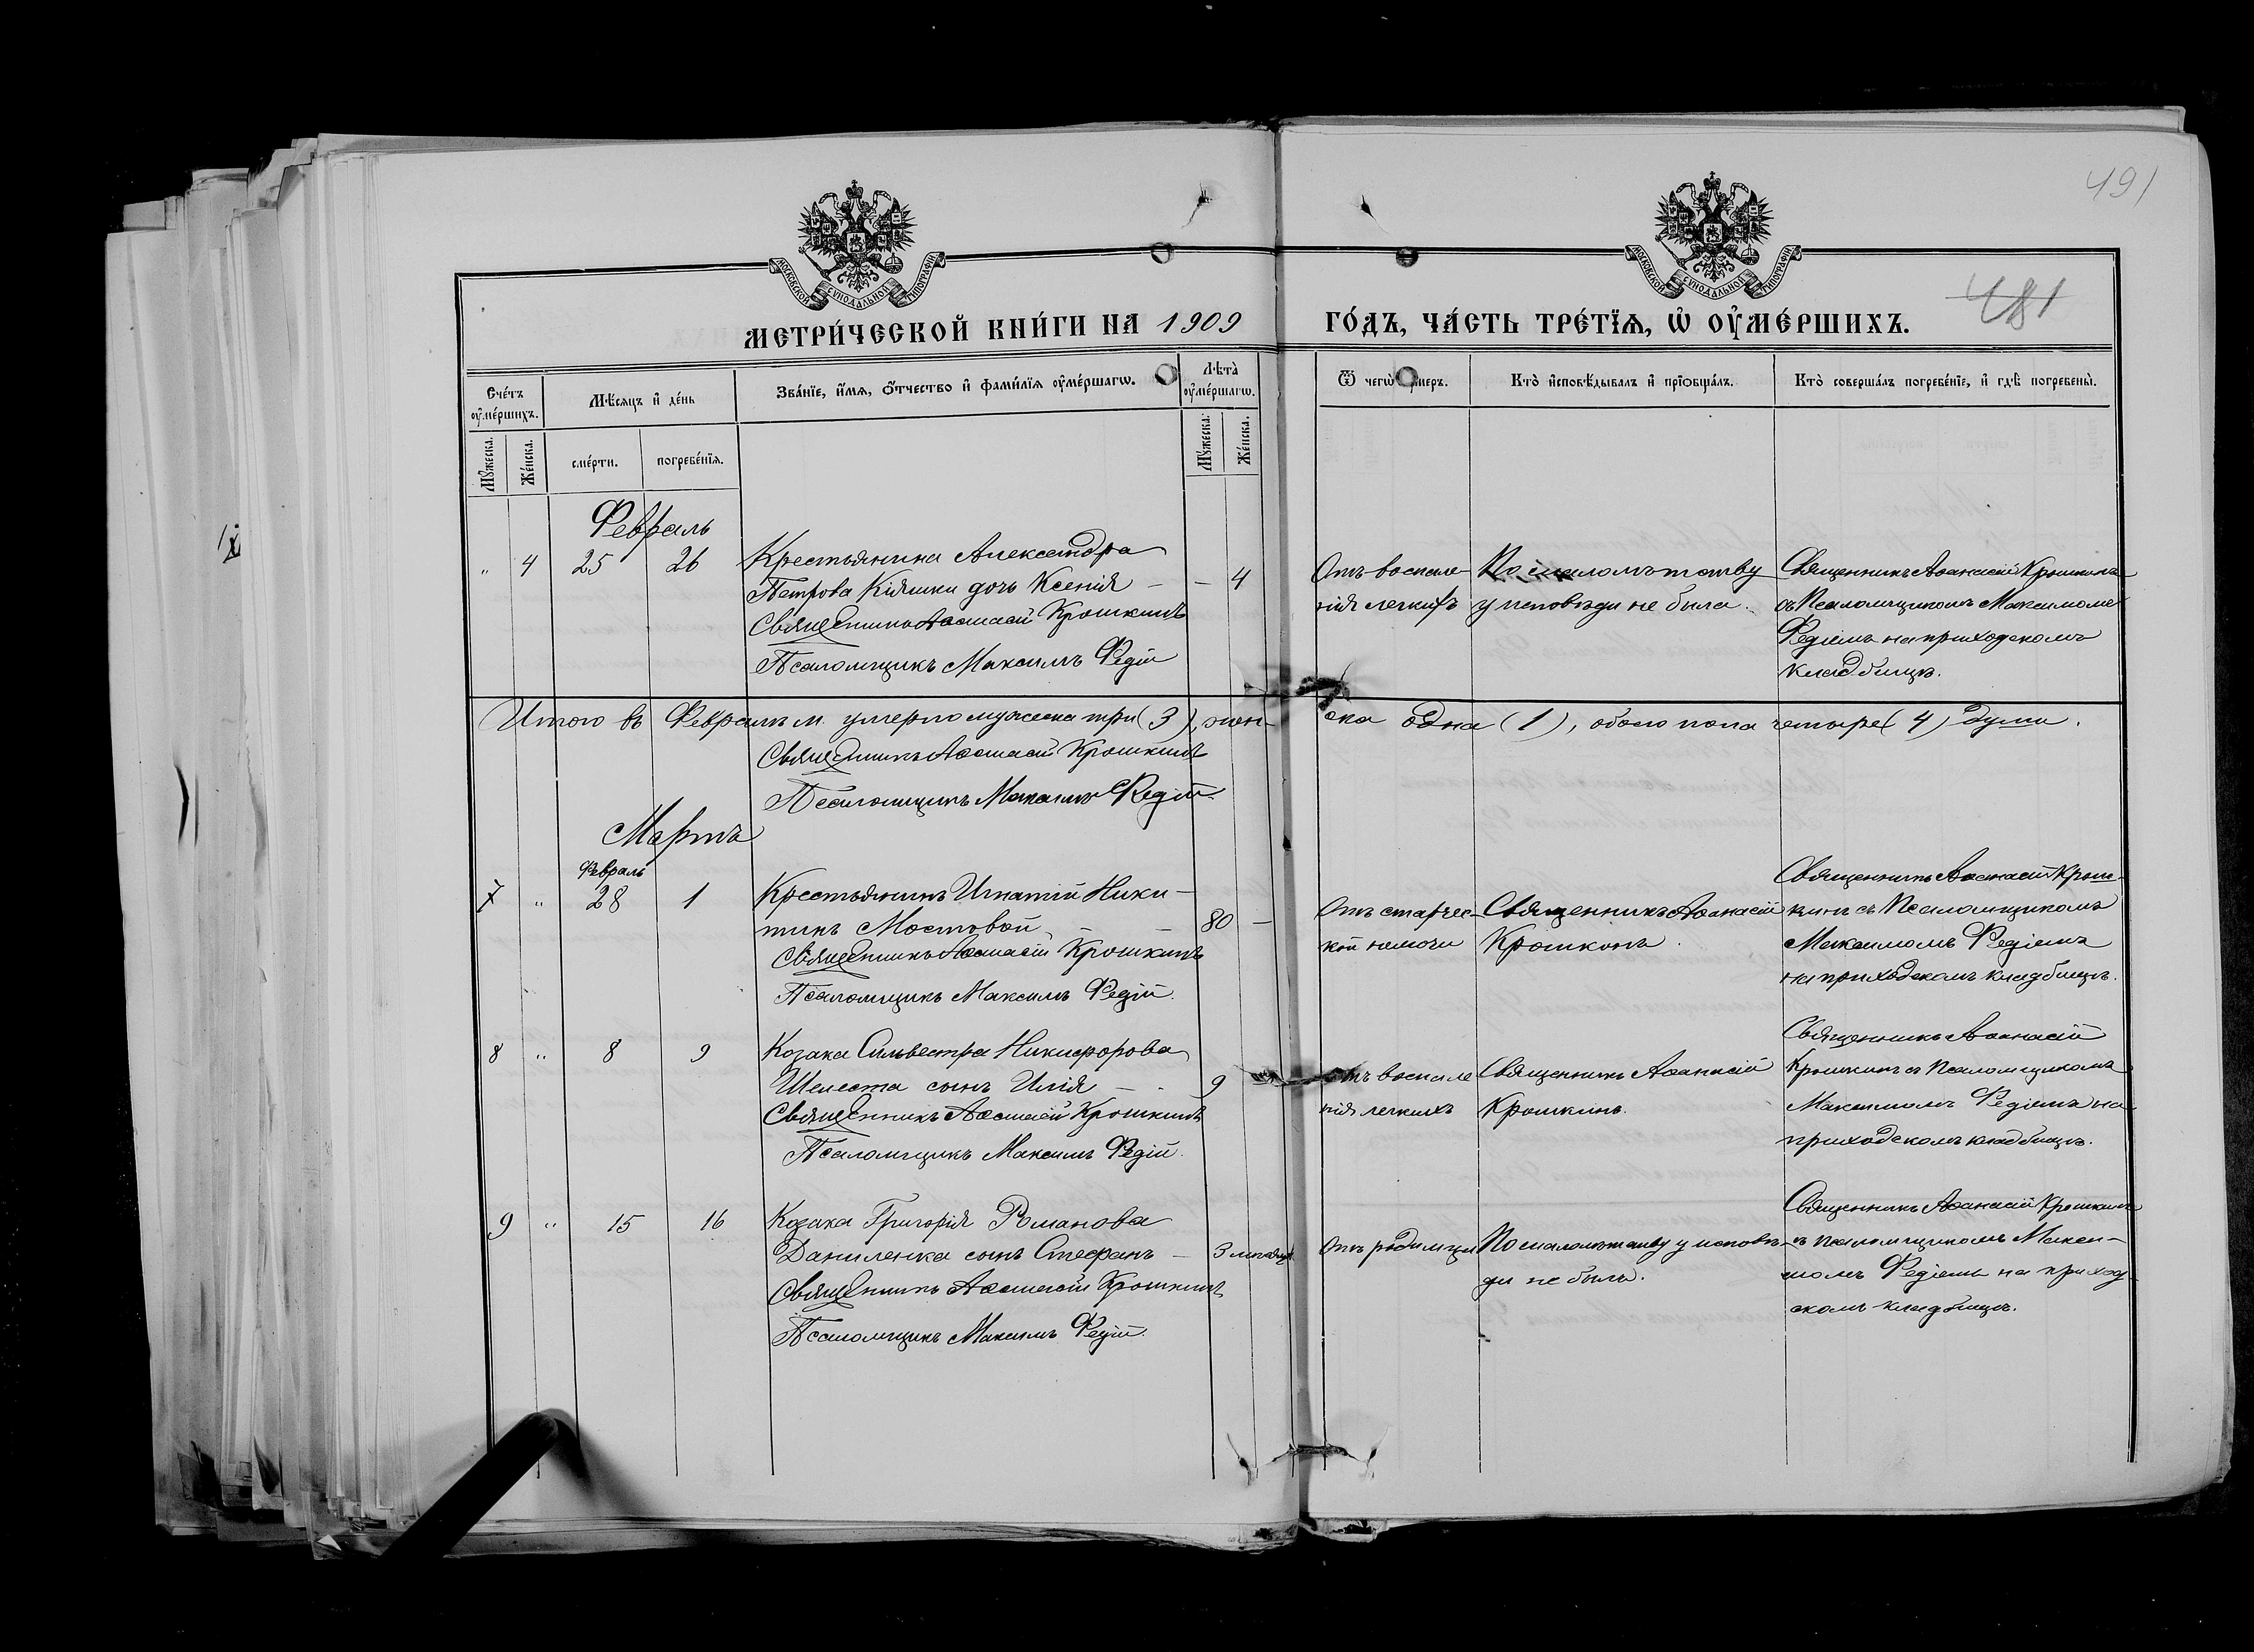 491
481
МОСКОВСКОЙ СѴНОДАЛЬНОЙ ТИПОГРАФІИ
МОСКОВСКОЙ СѴНОДАЛЬНОЙ ТИПОГРАФІИ
МЕТРИ́ЧЕСКОЙ КНИ́ГИ НА 1909 ГО́ДЪ, ЧА́СТЬ ТРЕ́ТЇѦ, Ѡ҆ ОУ҆МЕ́РШИХЪ.
Сче́тъ оу҆ме́ршихъ.
Мѣ́сяцъ и҆ де́нь
Зва́нїе, и҆́мѧ, ѻ҆́тчество и҆ фами́лїѧ оу҆ме́ршагѡ.
Лѣ́та̀ оу҆ме́ршагѡ.
Ѿ чегѡ̀ умеръ.
Кто̀ и҆сповѣ́дывалъ и҆ прїѡбща́лъ.
Кто̀ соверша́лъ погребе́нїе, и҆ гдѣ̀ погребены̀.
Мꙋ́жеска.
Же́нска.
сме́рти.
погребе́нїѧ.
Мꙋ́жеска.
Же́нска.
Февраль
" 4 25 26 Крестьянина Александра
Петрова Кіяшки дочь Ксенія — — 4
Священникъ Аѳанасій Крошкинъ
Псаломщикъ Максимъ Федій
Отъ воспале-
нія легкихъ
По малолѣтству
у исповѣди не была.
Священникъ Аѳанасій Крошкинъ
съ Псаломщикомъ Максимомъ
Федіемъ на приходскомъ
кладбищѣ.
Итого въ Февралѣ м. умерло мужеска три (3), жен-
ска одна (1), обоего пола четыре (4) души.
Священникъ Аѳанасій Крошкинъ
Псаломщикъ Максимъ Федій.
Мартъ
Февраль
7 " 28 1 Крестьянинъ Игнатій Ники-
тинъ Мостовой — 80 —
Священникъ Аѳанасій Крошкинъ
Псаломщикъ Максимъ Федій.
Отъ старчес-
кой немочи
Священникъ Аѳанасій
Крошкинъ.
Священникъ Аѳанасій Крош-
кинъ съ Псаломщикомъ
Максимомъ Федіемъ
на приходскомъ кладбищѣ.
8 " 8 9 Козака Сильвестра Никифорова
Шелеста сынъ Илія — 9
Священникъ Аѳанасій Крошкинъ
Псаломщикъ Максимъ Федій.
Отъ воспале
нія легкихъ
Священникъ Аѳанасій
Крошкинъ.
Священникъ Аѳанасій
Крошкинъ съ Псаломщикомъ
Максимомъ Федіемъ на
приходскомъ кладбищѣ.
9 " 15 16 Козака Григорія Романова
Даниленка сынъ Стефанъ — 3 мѣсяца
Священникъ Аѳанасій Крошкинъ
Псаломщикъ Максимъ Федій.
Отъ родимца
По малолѣтству у исповѣ-
ди не былъ.
Священникъ Аѳанасій Крошкинъ
съ Псаломщикомъ Макси-
момъ Федіемъ на приход-
скомъ кладбищѣ.